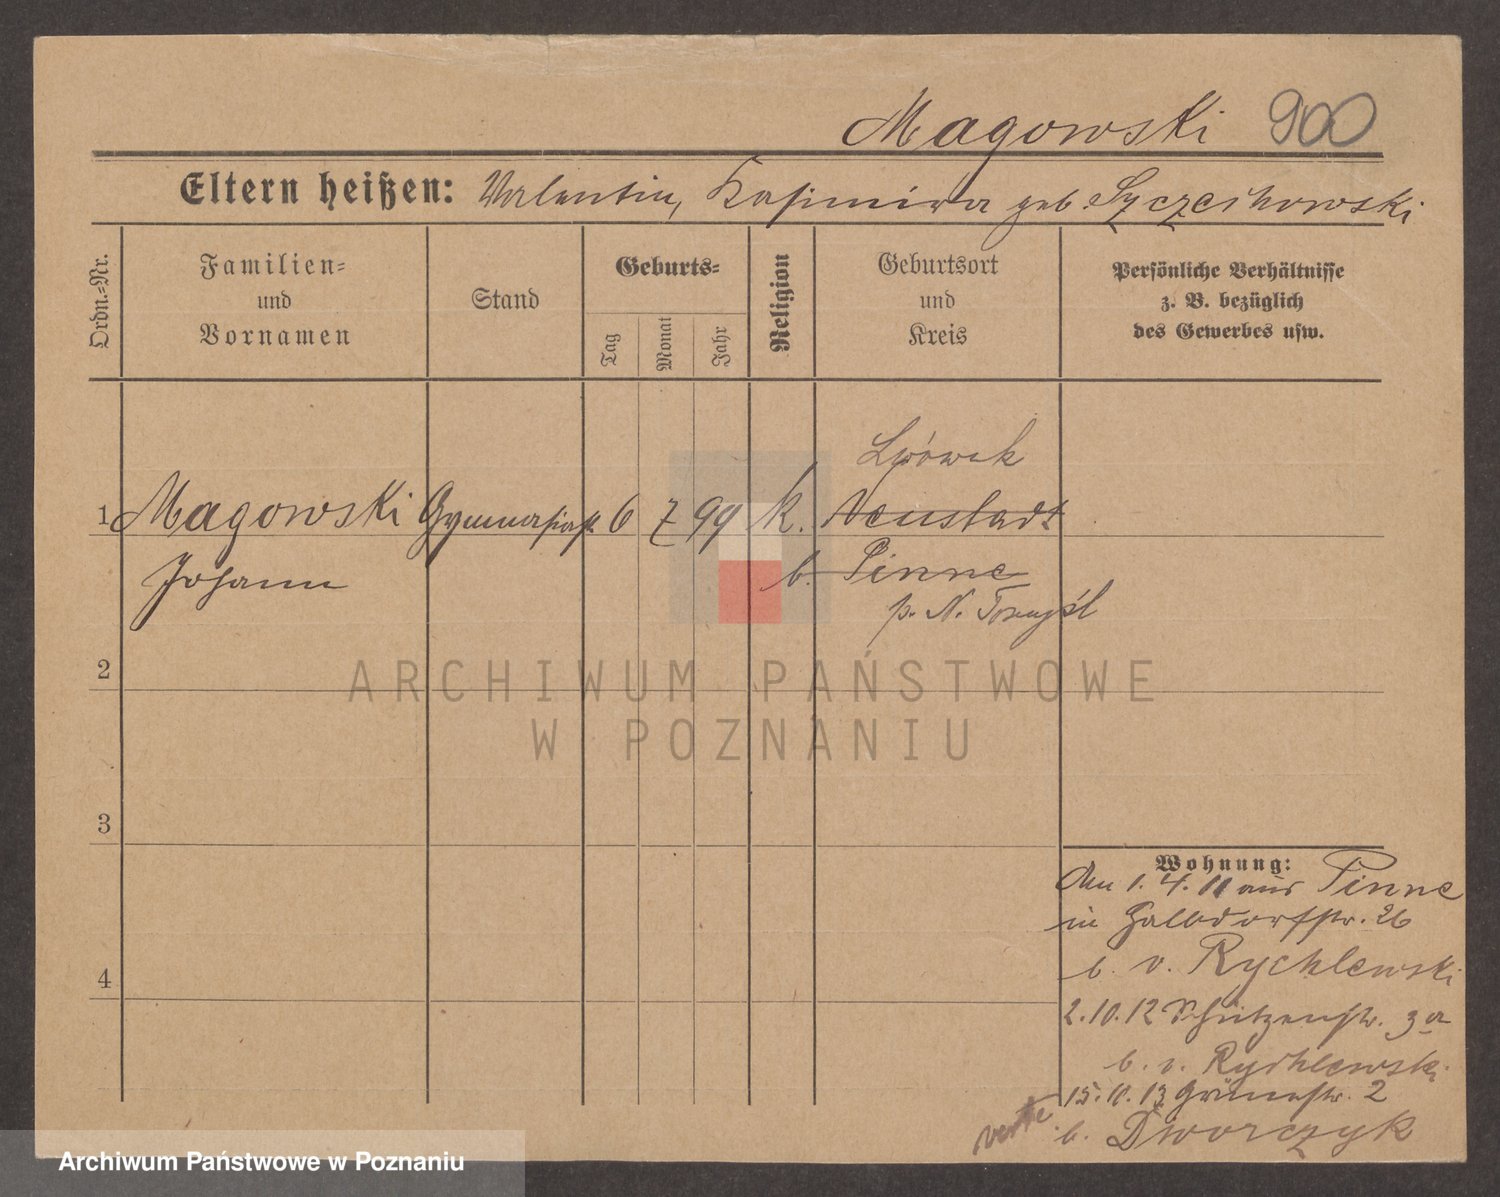 Magowski 900
Eltern heißen: Valentin, Kasimira geb. Szczechowski
Ordn.=Nr.
Familien=
und
Vornamen
Stand
Geburts=
Tag
Monat
Jahr
Religion
Geburtsort
und
Kreis
Persönliche Verhältnisse
z. B. bezüglich
des Gewerbes usw.
Lwówek
1 Magowski Gymnasiast 6 7 99 k. Neustadt
Johann b. Pinne
p. N. Tomyśl
2
3
4
ARCHIWUM PAŃSTWOWE
W POZNANIU
Wohnung:
Am 1. 4. 11 aus Pinne
in Halbdorfstr. 26
b. v. Rychlewski
2.10.12 Schützenstr. 3a
b. v. Rychlewski
15.10.13 Grünestr. 2
b. Dworczyk
verte
Archiwum Państwowe w Poznaniu